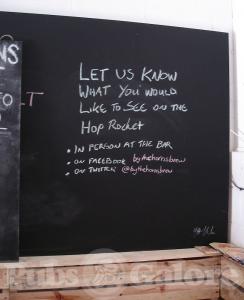 NS
LT
LET US KNOW
WHAT YOU WOULD
LIKE TO SEE ON THE
HOP ROCKET
• IN PERSON AT THE BAR
• ON FACEBOOK bythehorns brew
• ON TWITTER @bythehornsbrew
Pubs Galore